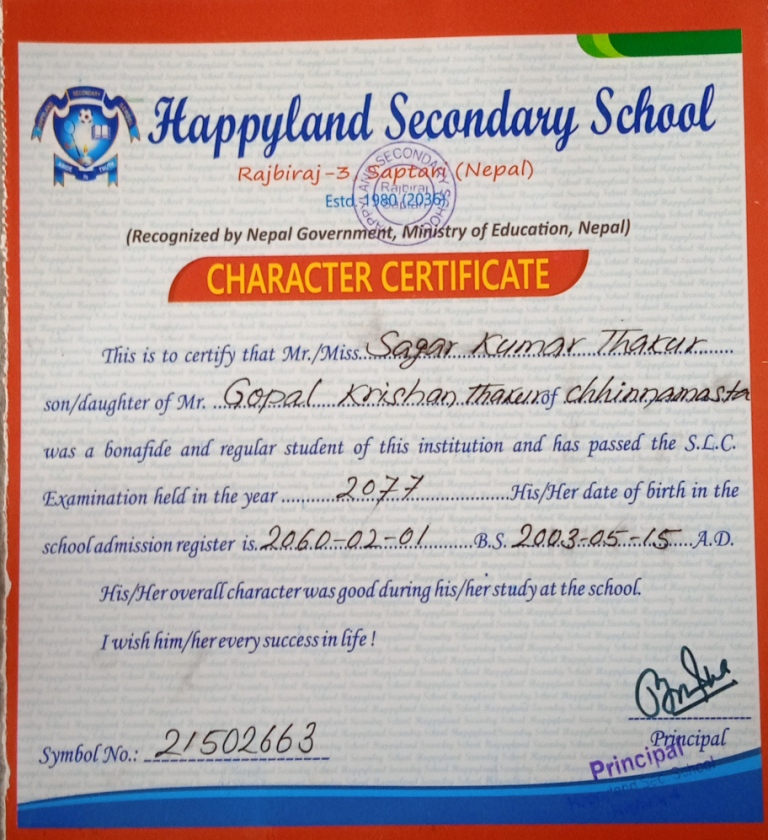 Happyland Secondary School
Rajbiraj-3, Saptari (Nepal)
Estd. 1980 (2036)
HAPPYLAND SECONDARY SCHOOL
Rajbiraj
Saptari
(Recognized by Nepal Government, Ministry of Education, Nepal)
CHARACTER CERTIFICATE
This is to certify that Mr./Miss. Sagar Kumar Thakur
son/daughter of Mr. Gopal Krishan Thakur of Chhinnamasta
was a bonafide and regular student of this institution and has passed the S.L.C.
Examination held in the year 2077 His/Her date of birth in the
school admission register is. 2060-02-01 B.S. 2003-05-15 A.D.
His/Her overall character was good during his/her study at the school.
I wish him/her every success in life !
Symbol No.: 21502663
Principal
Principal